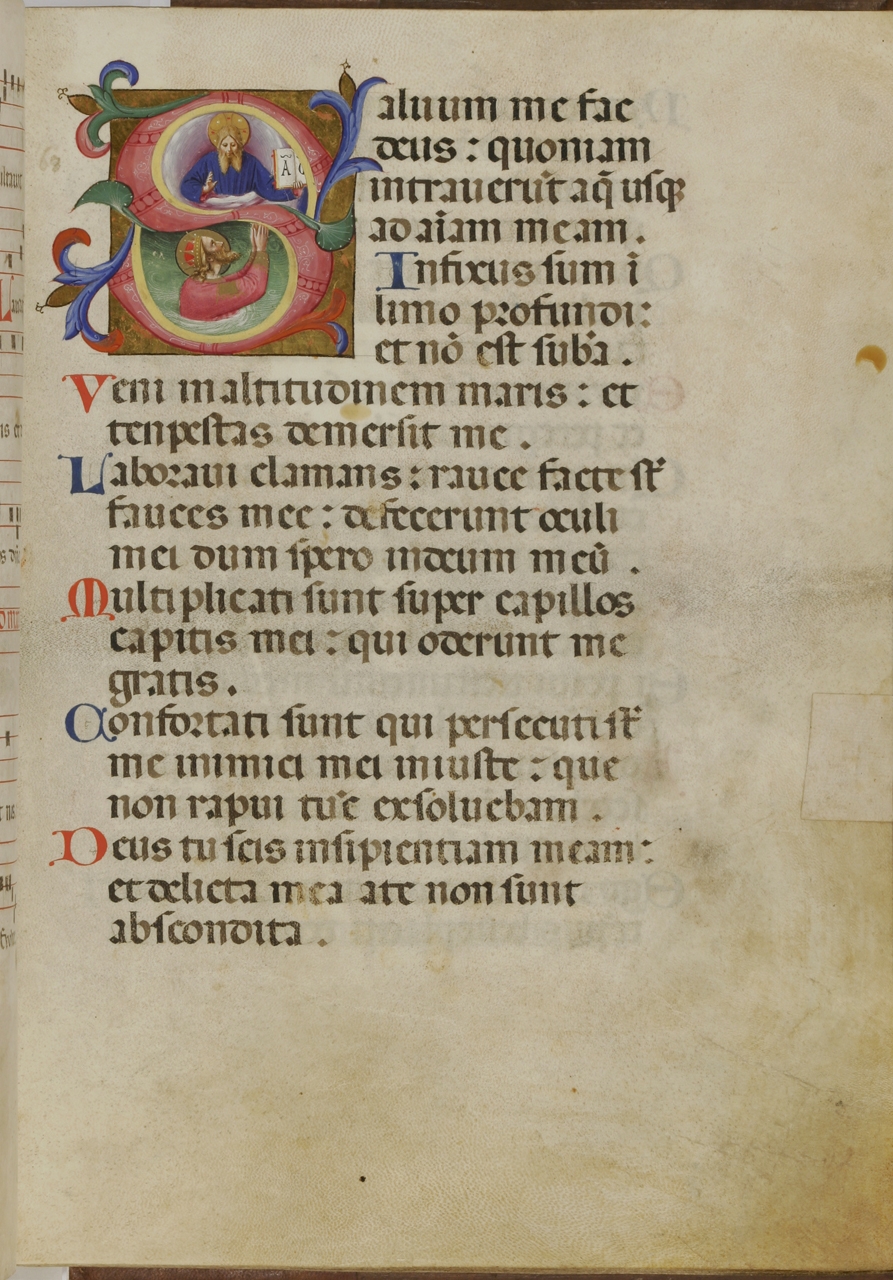 Saluum me fac
deus : quoniam
intrauerūt aq̄ usqꝫ
ad aīam meam .
Infixus sum ī
limo profundi :
et nō est sub̄a .
Veni in altitudinem maris : et
tenpestas demersit me .
Laboraui clamans : rauce facte sт̄
fauces mee : defecerunt oculi
mei dum spero in deum meū .
Multiplicati sunt super capillos
capitis mei : qui oderunt me
gratis .
Confortati sunt qui persecuti sт̄
me inimici mei iniuste : que
non rapui tūc exsoluebam .
Deus tu scis insipientiam meam :
et delicta mea a te non sunt
abscondita .